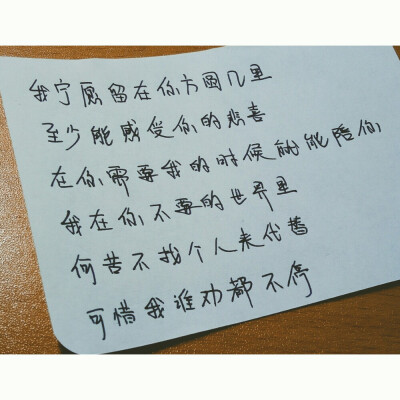 我宁愿留在你方圆几里
至少能感受你的悲喜
在你需要我的时候的能陪你
我在你不要的世界里
何苦不找个人来代替
可惜我谁劝都不停